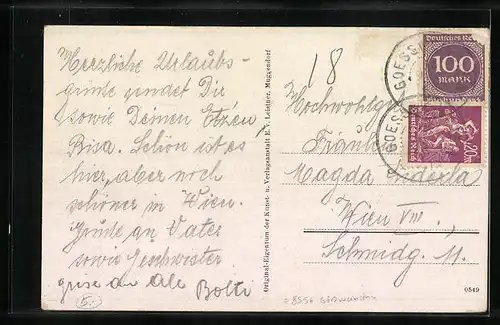 Herzliche Urlaubs-
grüße sendet Dir
sowie Deinen
Schön ist es
hier, aber noch
schöner in Wien.
Grüße an Vater
sowie Geschwister
an
Original-Eigentum der Kunst- u. Verlagsanstalt E. v. Leistner, Muggendorf
18
Hochwohlg
Fräulein
Magda
Wien VIII,
Schmidg. 11.
Deutsches Reich
100
MARK
GOESS
GOESS
Deutsches Reich
5.-
0549